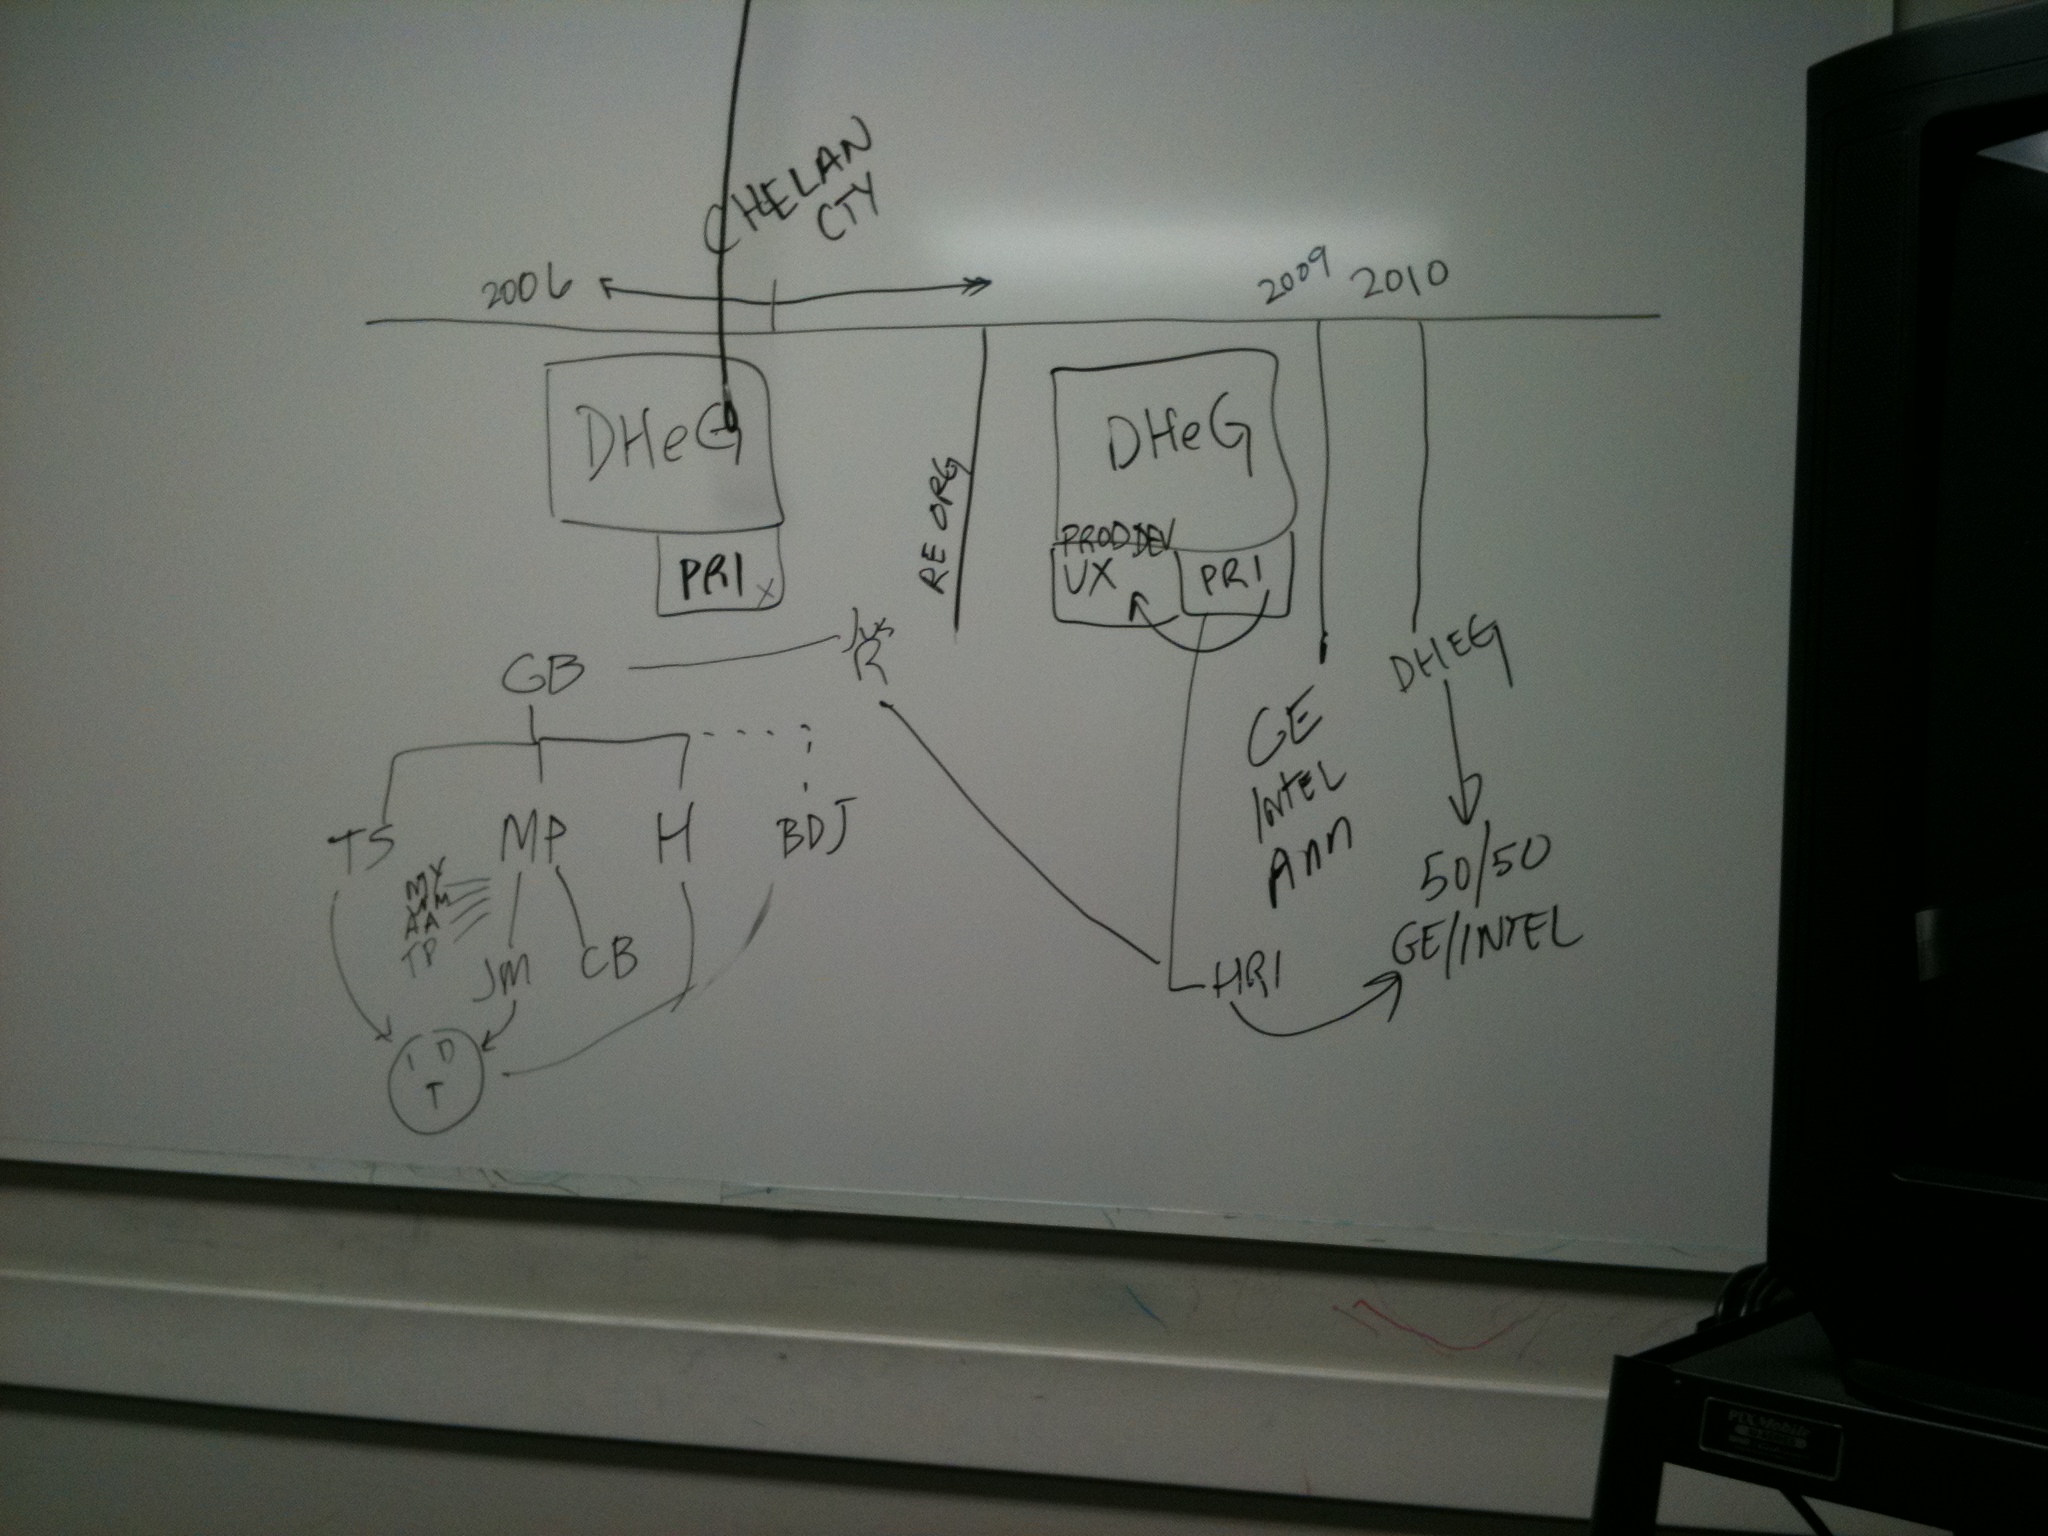 CHELAN
CTY
2006
2009
2010
DHeG
PRI
X
RE ORG
DHeG
PROD DEV
UX
PRI
GB
R
TS
MP
H
BDJ
MY
AA
TP
JM
CB
I D
T
GE
INTEL
ANN
DHEG
50/50
GE/INTEL
HRI
PIX Mobile